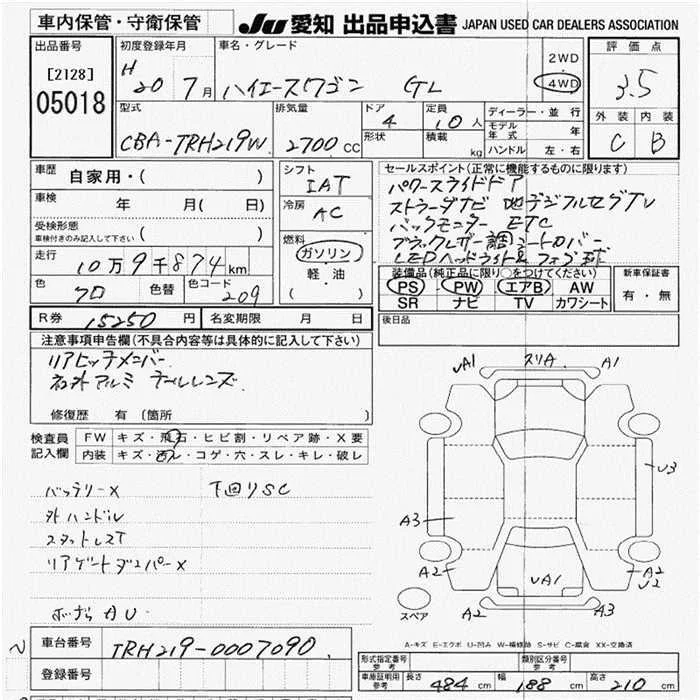 車内保管・守衛保管
JU 愛知 出品申込書 JAPAN USED CAR DEALERS ASSOCIATION
出品番号
[2128]
05018
初度登録年月
H 20 7月
車名・グレード
ハイエースワゴン GL
2WD
4WD
評価点
3.5
外装 内装
C B
型式
CBA-TRH219W
排気量
2700 CC
ドア
4
形状
定員
10人
積載
kg
ディーラー・並行
モデル年式 年
ハンドル 左・右
車歴
自家用・( )
車検 年 月( 日)
受検形態
車検付きのみ記入して下さい ( )
走行 10万9千874km
色 クロ 色替 色コード 209
シフト
IAT
冷房
AC
燃料
ガソリン
軽油
( )
セールスポイント(正常に機能するものに限ります)
パワースライドドア
ストラーダナビ 地デジフルセグTV
バックモニター ETC
ブラックレザー調シートカバー
LEDヘッドライト& フォグ球
装備品(純正品に限り○をつけてください)
PS PW エアB AW
SR ナビ TV カワシート
新車保証書
有・無
R券 15250円 名変期限 月 日
後日品
注意事項申告欄(不具合内容等は具体的に記入して下さい)
リアヒッチメンバー
社外アルミ テールレンズ
修復歴 有(箇所 )
検査員
記入欄
FW キズ・飛石・ヒビ割・リペア跡・X要
内装 キズ・汚レ・コゲ・穴・スレ・キレ・破レ
バッテリーX 下回りSC
外ハンドル
リアゲートダンパーX
AU
UA1 スリA A1
U3
A3
A2 UA1 A2
U2
スペア A2 A3
A-キズ E-エクボ U-凹み W-補修跡 S-サビ C-腐食 XX-交換済
車台番号 TRH219-0007090
登録番号
形式指定番号 参考
類別区分番号 参考
車庫証明用 参考 長さ 484cm 幅 188cm 高さ 210cm